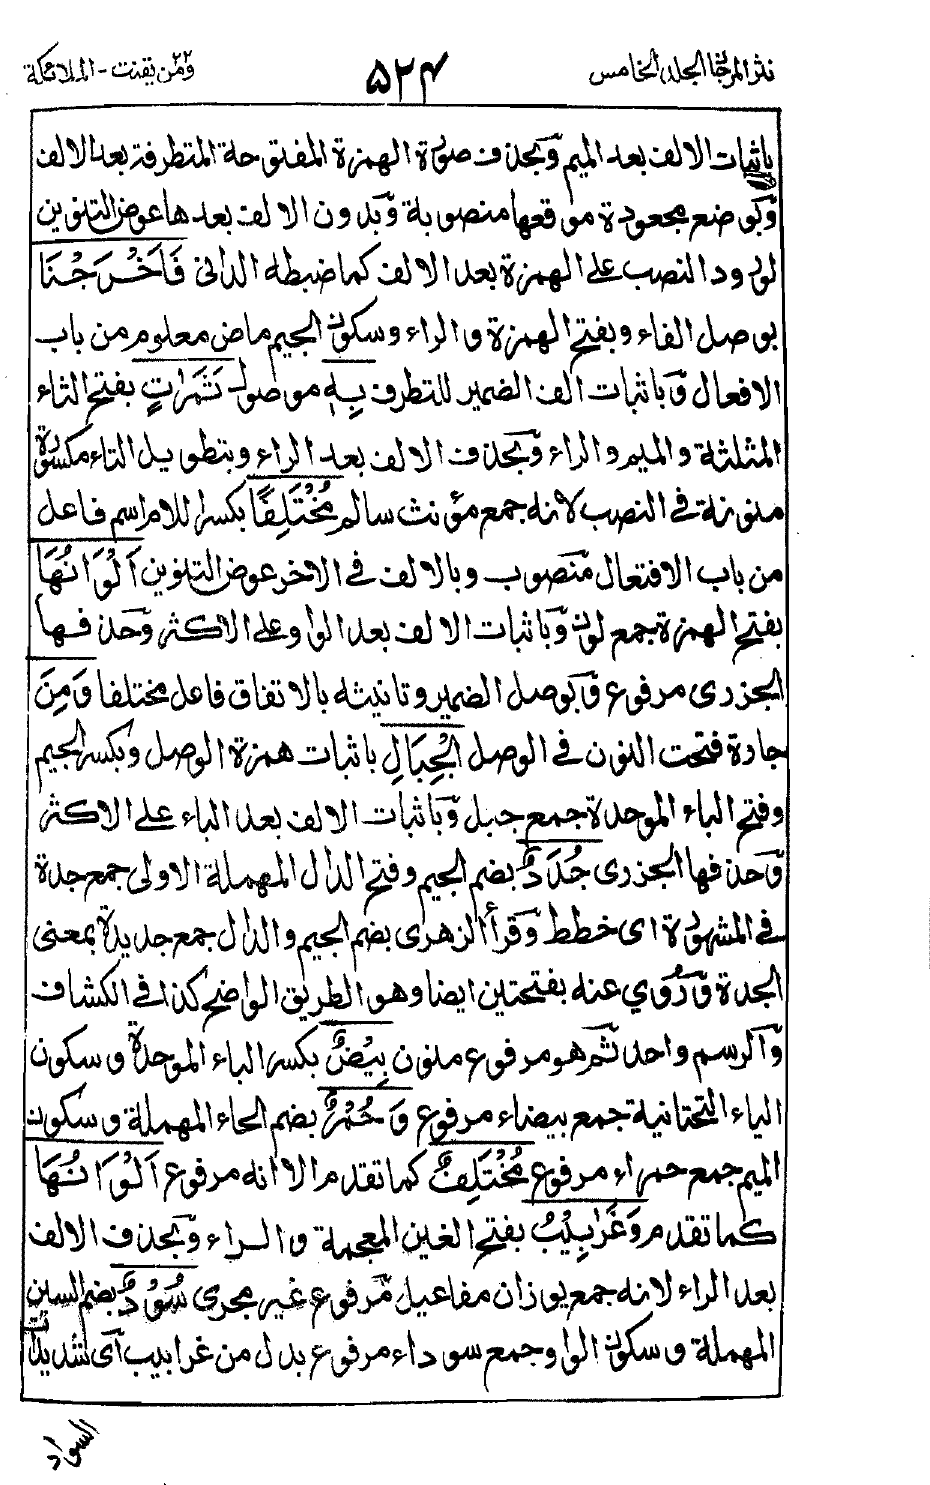 نثر المرجان الجلد الخامس ٥٢٤ ومن يقنت - الملائكة
باثبات الالف بعد الميم وبحذف صورة الهمزة المفتوحة المتطرفة بعد الالف
وبوضع مجعودة موقعها منصوبة وبدون الالف بعدها عوض التنوين
لورود النصب على الهمزة بعد الالف كما ضبطه الدانى فَاَخْرَجْنَا
بوصل الفاء وبفتح الهمزة والراء وسكون الجيم ماض معلوم من باب
الافعال وباثبات الف الضمير للتطرف بِهٖ موصول ثَمَرٰتٍ بفتح الثاء
المثلثة والميم والراء وبحذف الالف بعد الراء وبتطويل التاء مكسورة
منونة فى النصب لانه جمع مؤنث سالم مُخْتَلِفًا بكسر اللام اسم فاعل
من باب الافتعال منصوب وبالالف فى الاخر عوض التنوين اَلْوَانُهَا
بفتح الهمزة جمع لون وباثبات الالف بعد الواو على الاكثر وحذفها
الجزرى مرفوع وبوصل الضمير وتانيثه بالاتفاق فاعل مختلفا وَمِنَ
جادة فتحت النون فى الوصل الْجِبَالِ باثبات همزة الوصل وبكسر الجيم
وفتح الباء الموحدة جمع جبل وباثبات الالف بعد الباء على الاكثر
وحذفها الجزرى جُدَدٌ بضم الجيم وفتح الدال المهملة الاولى جمع جدة
فى المشهورة اى خطط وقرأ الزهرى بضم الجيم والدال جمع جديدة بمعنى
الجدة ورُوي عنه بفتحتين ايضا وهو الطريق الواضح كذا فى الكشاف
والرسم واحد ثم هو مرفوع منون بِيْضٌ بكسر الباء الموحدة وسكون
الياء التحتانية جمع بيضاء مرفوع وَحُمْرٌ بضم الحاء المهملة وسكون
الميم جمع حمراء مرفوع مُخْتَلِفٌ كما تقدم الا انه مرفوع اَلْوَانُهَا
كما تقدم وَغَرَابِيْبُ بفتح الغين المعجمة والراء وبحذف الالف
بعد الراء لانه جمع يوازن مفاعيل مرفوع غير مجرى سُوْدٌ بضم السين
المهملة وسكون الواو جمع سوداء مرفوع بدل من غرابيب اى شديدات
السواد